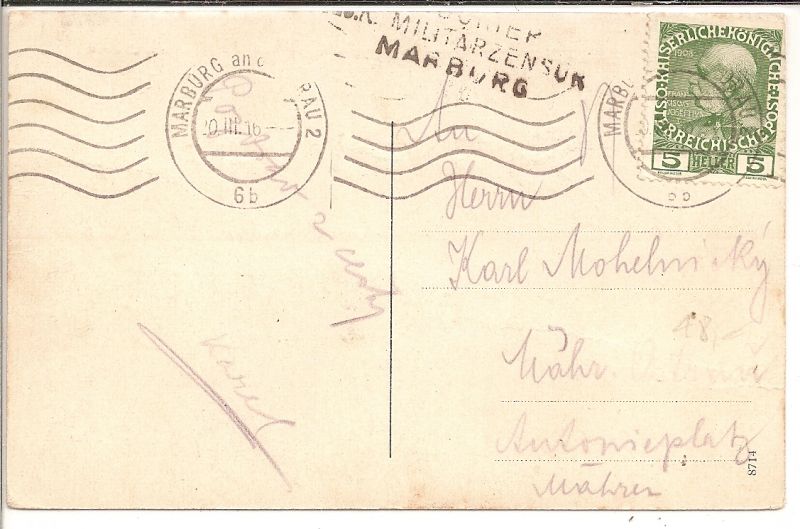 MILITÄRZENSUR
MARBURG
MARBURG an d DRAU 2
20.III.16
6b
MARBU
6b
KAISERLICHE KÖNIGLICHE
ÖSTERREICHISCHE POST
1908
FRANZ
5 HELLER 5
An
Herrn
Karl Mohelnický
Mähr.
Antonieplatz
Mähren
Pozdrav z cesty
Karel
48,-
8714